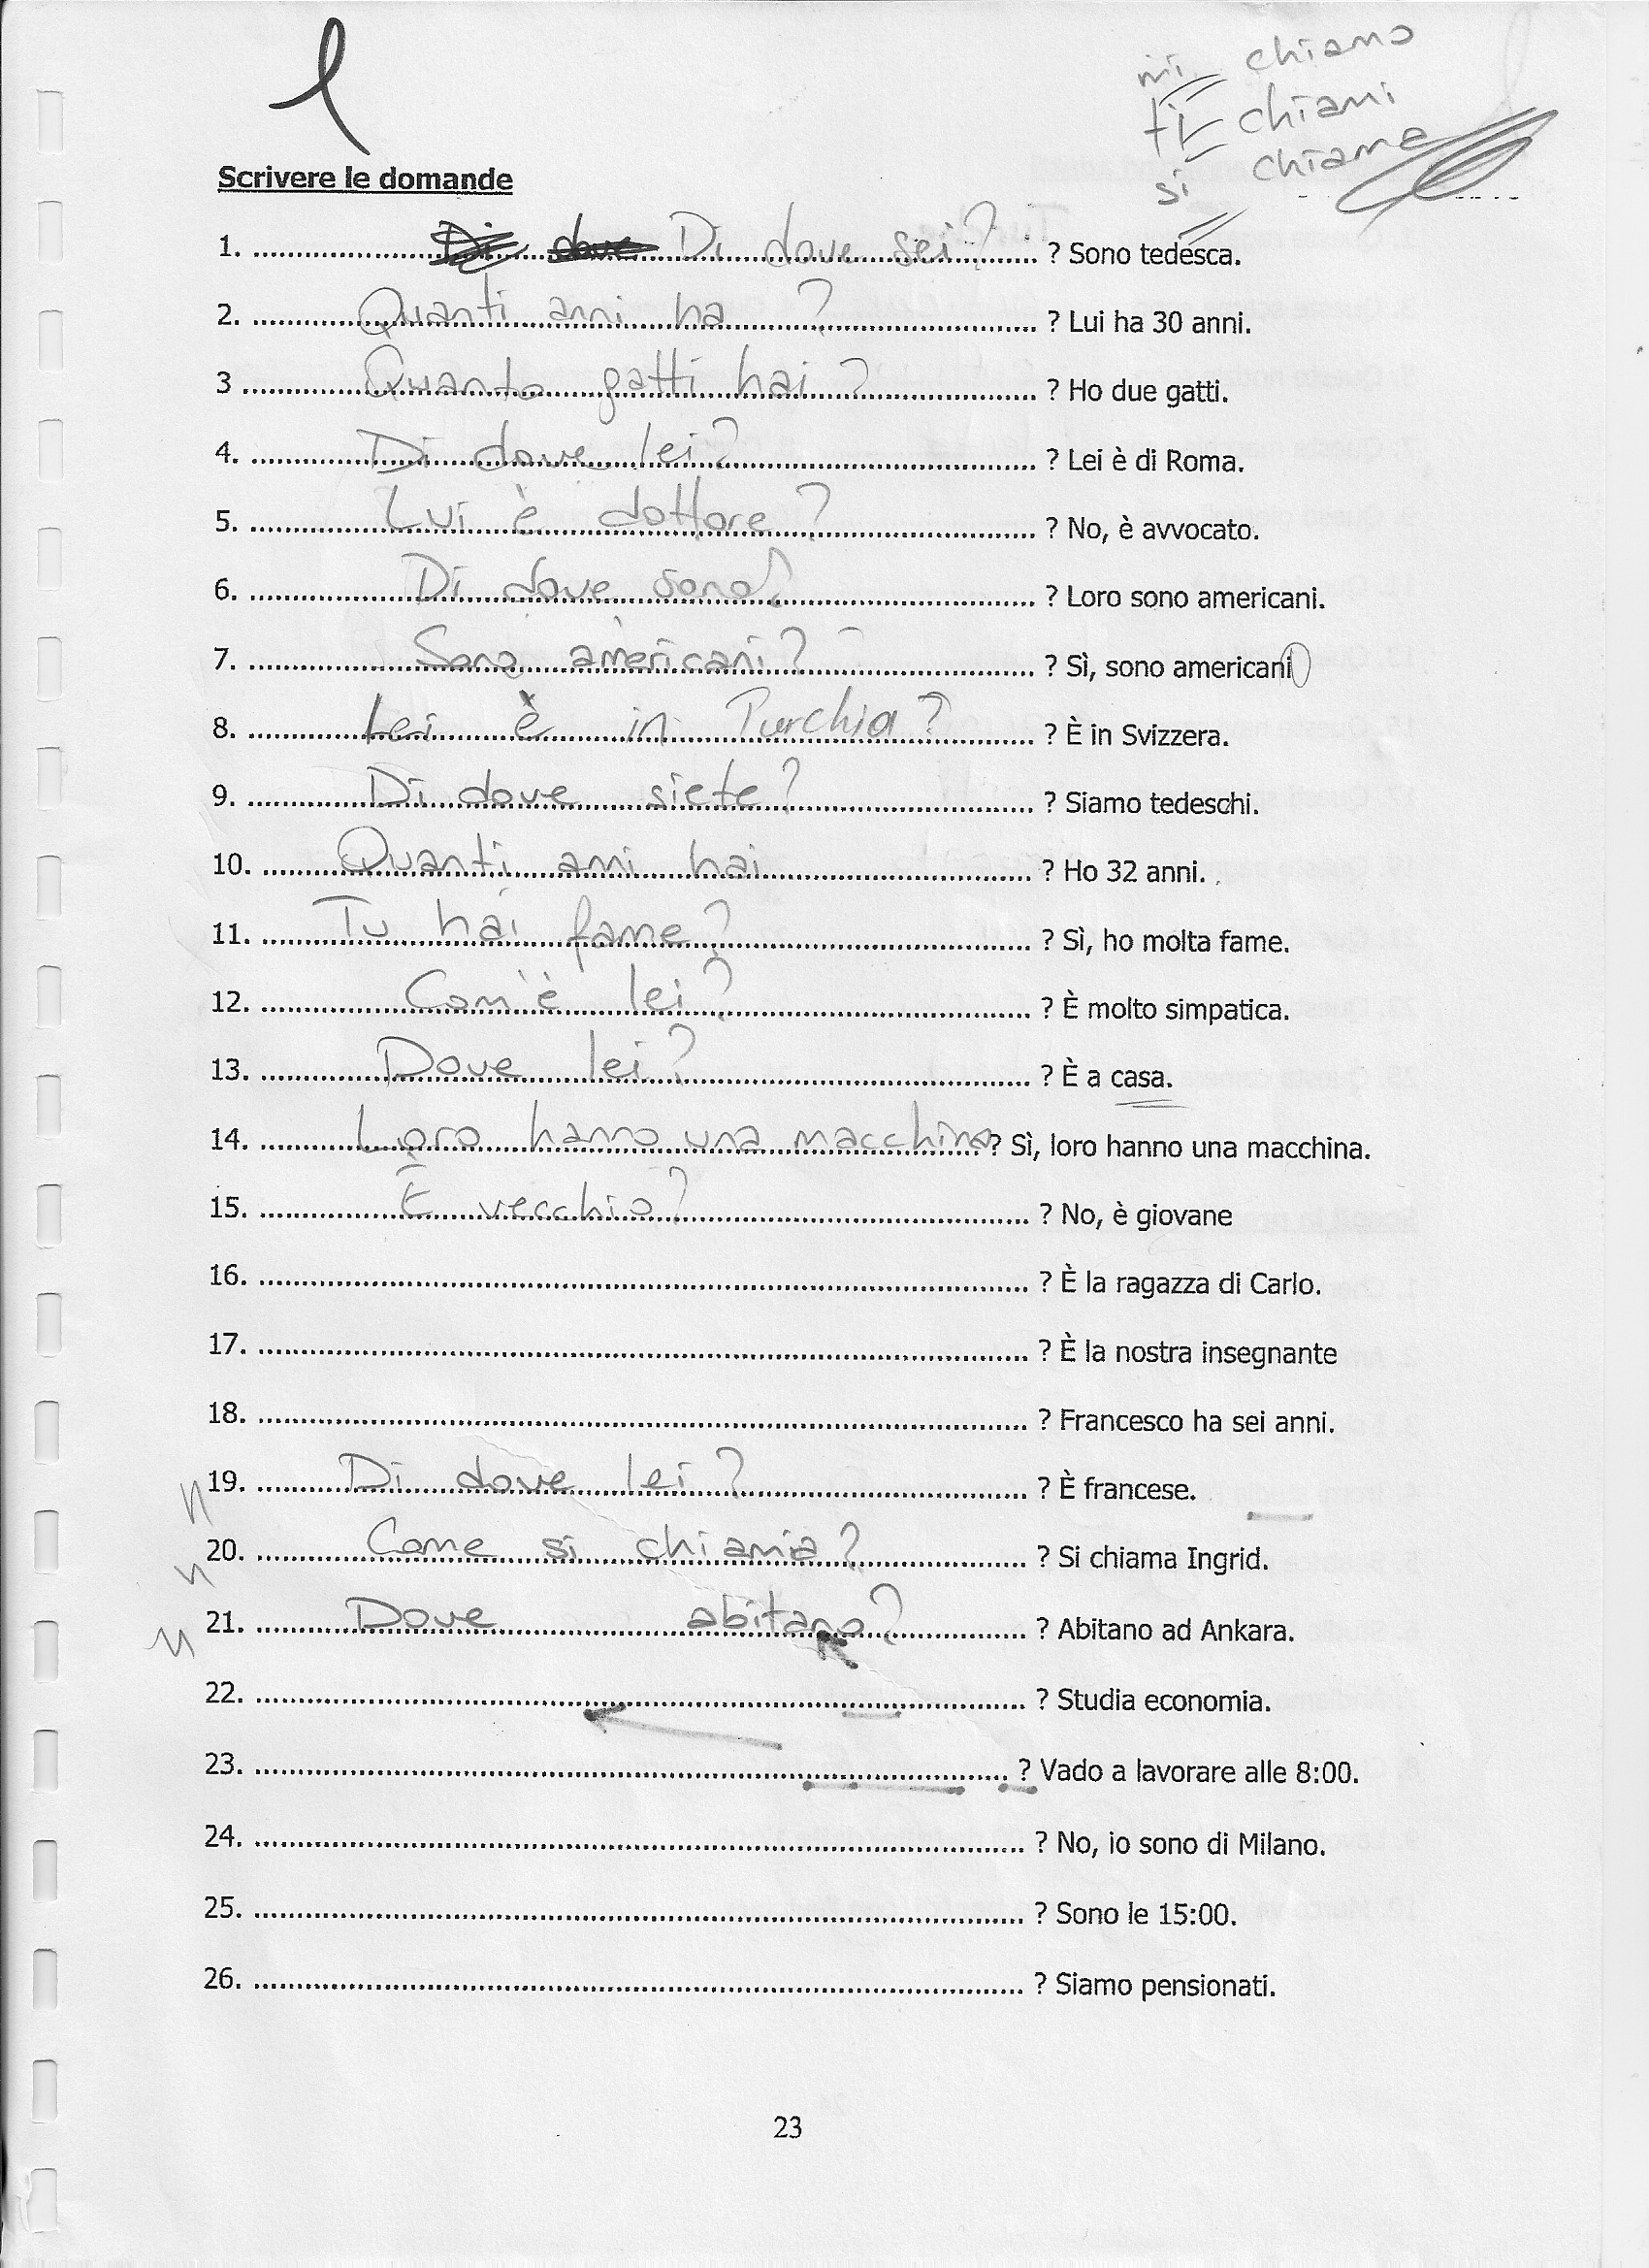 mi chiamo
ti chiami
si chiama
Scrivere le domande
1. Di dove Di dove sei? ? Sono tedesca.
2. Quanti anni ha ? ? Lui ha 30 anni.
3 Quanto gatti hai? ? Ho due gatti.
4. Di dove lei? ? Lei è di Roma.
5. Lui è dottore? ? No, è avvocato.
6. Di dove sono? ? Loro sono americani.
7. Sono americani? ? Sì, sono americani
8. Lei è in Turchia? ? È in Svizzera.
9. Di dove siete? ? Siamo tedeschi.
10. Quanti anni hai ? Ho 32 anni.
11. Tu hai fame? ? Sì, ho molta fame.
12. Com'è lei? ? È molto simpatica.
13. Dove lei? ? È a casa.
14. Loro hanno una macchina? Sì, loro hanno una macchina.
15. È vecchio? ? No, è giovane
16. ? È la ragazza di Carlo.
17. ? È la nostra insegnante
18. ? Francesco ha sei anni.
19. Di dove lei? ? È francese.
20. Come si chiamia? ? Si chiama Ingrid.
21. Dove abitano? ? Abitano ad Ankara.
22. ? Studia economia.
23. ? Vado a lavorare alle 8:00.
24. ? No, io sono di Milano.
25. ? Sono le 15:00.
26. ? Siamo pensionati.
23